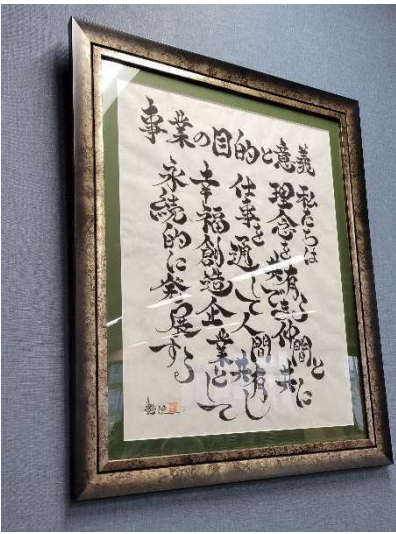 事業の目的と意義
私たちは
理念を共有できる仲間と共に
仕事を通して人間共有し
幸福創造企業として
永続的に発展する